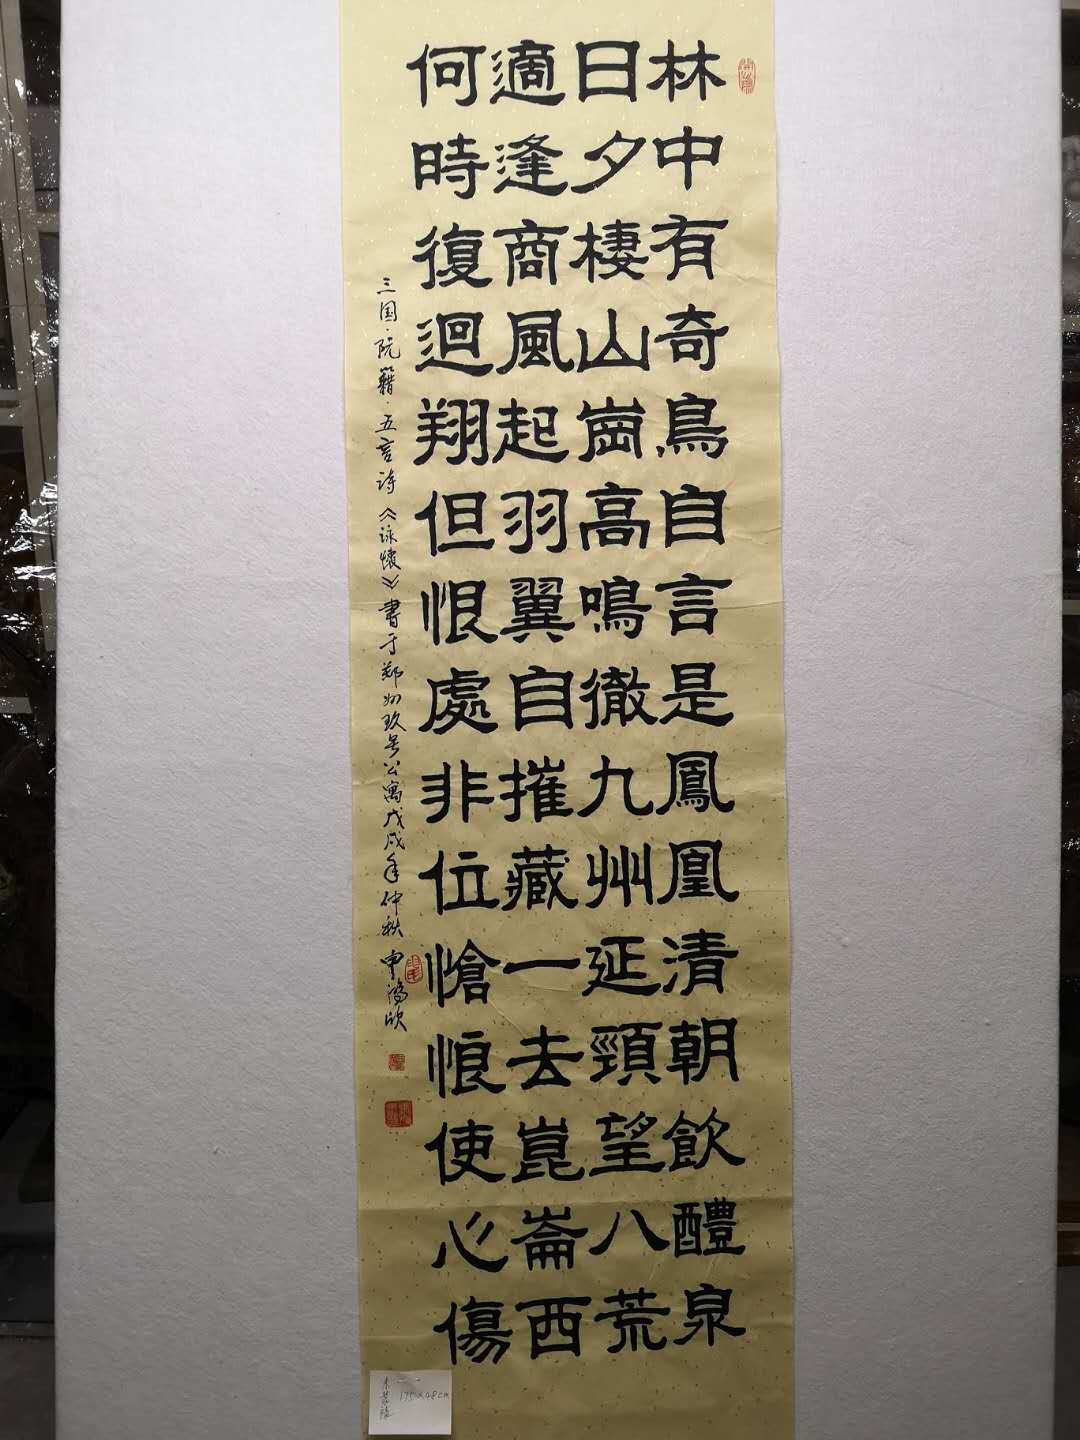 林中有奇鳥自言是鳳凰清朝飲醴泉
日夕棲山崗高鳴徹九州延頸望八荒
適逢商風起羽翼自摧藏一去崑崙西
何時復迴翔但恨處非位愴悢使心傷
三国·阮籍·五言诗《咏懷》書于郑州玖号公寓戊戌年仲秋 申鴻欣
175×48cm